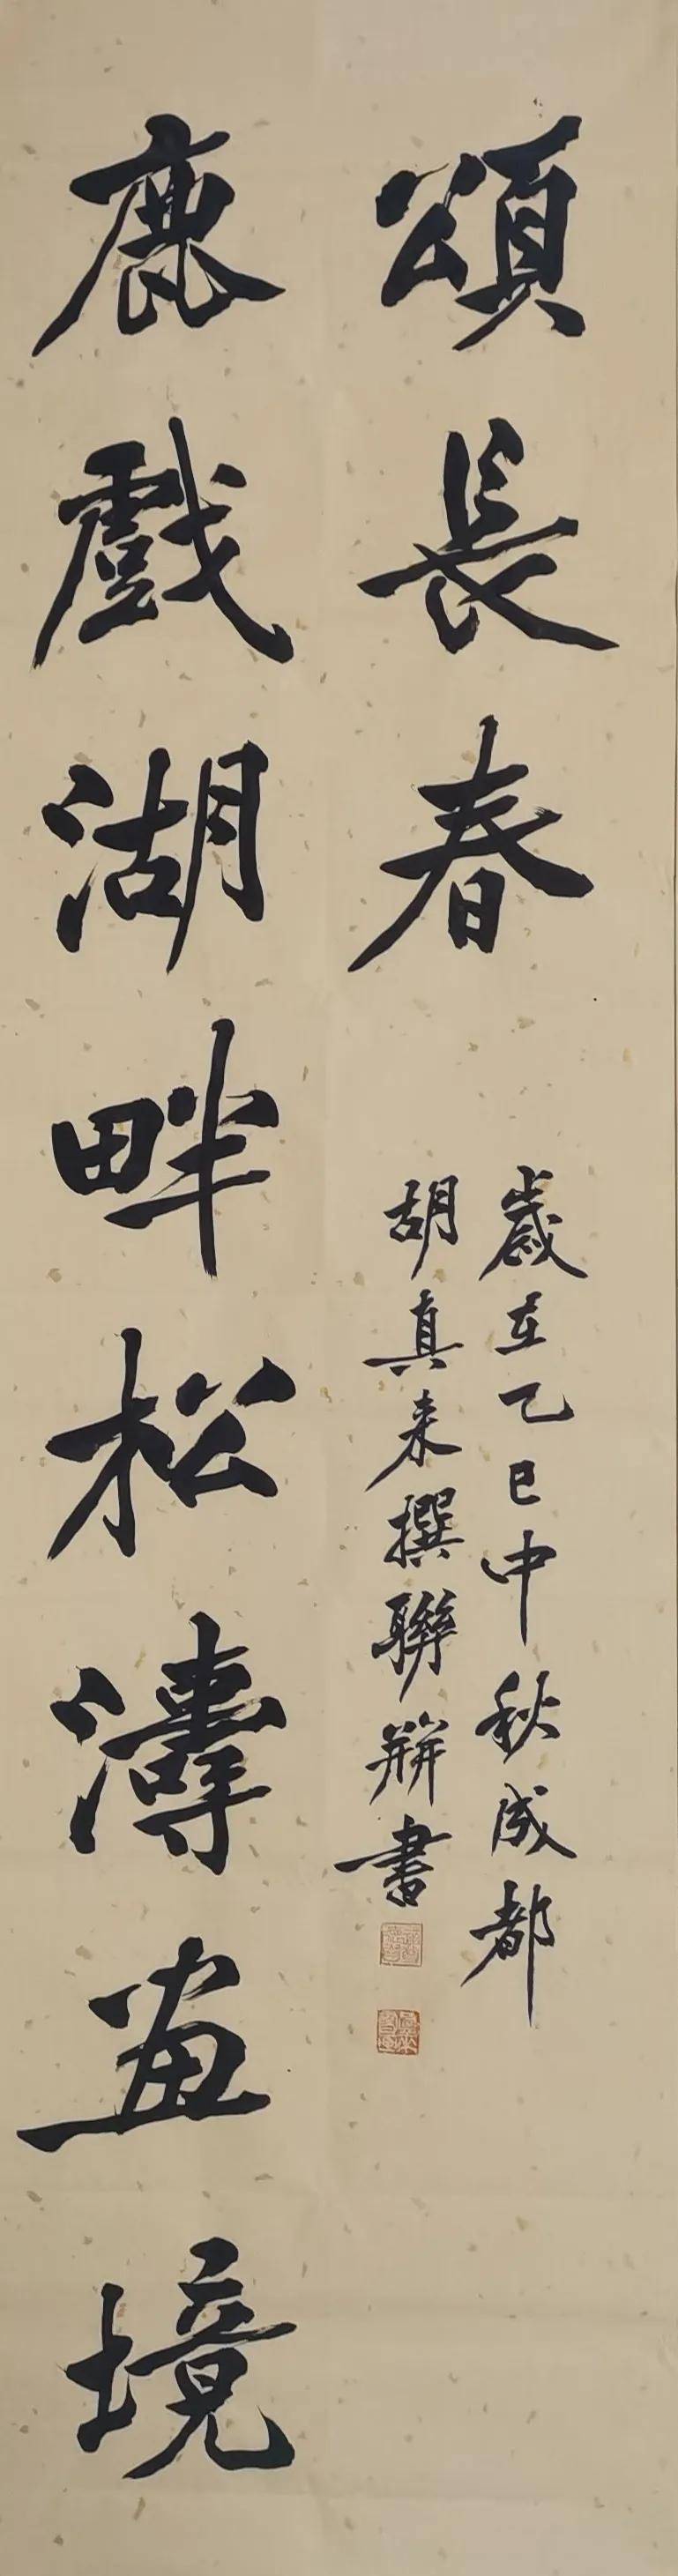 鹿戲湖畔松濤畫境
頌長春
歲在乙巳中秋成都
胡真来撰聯并書